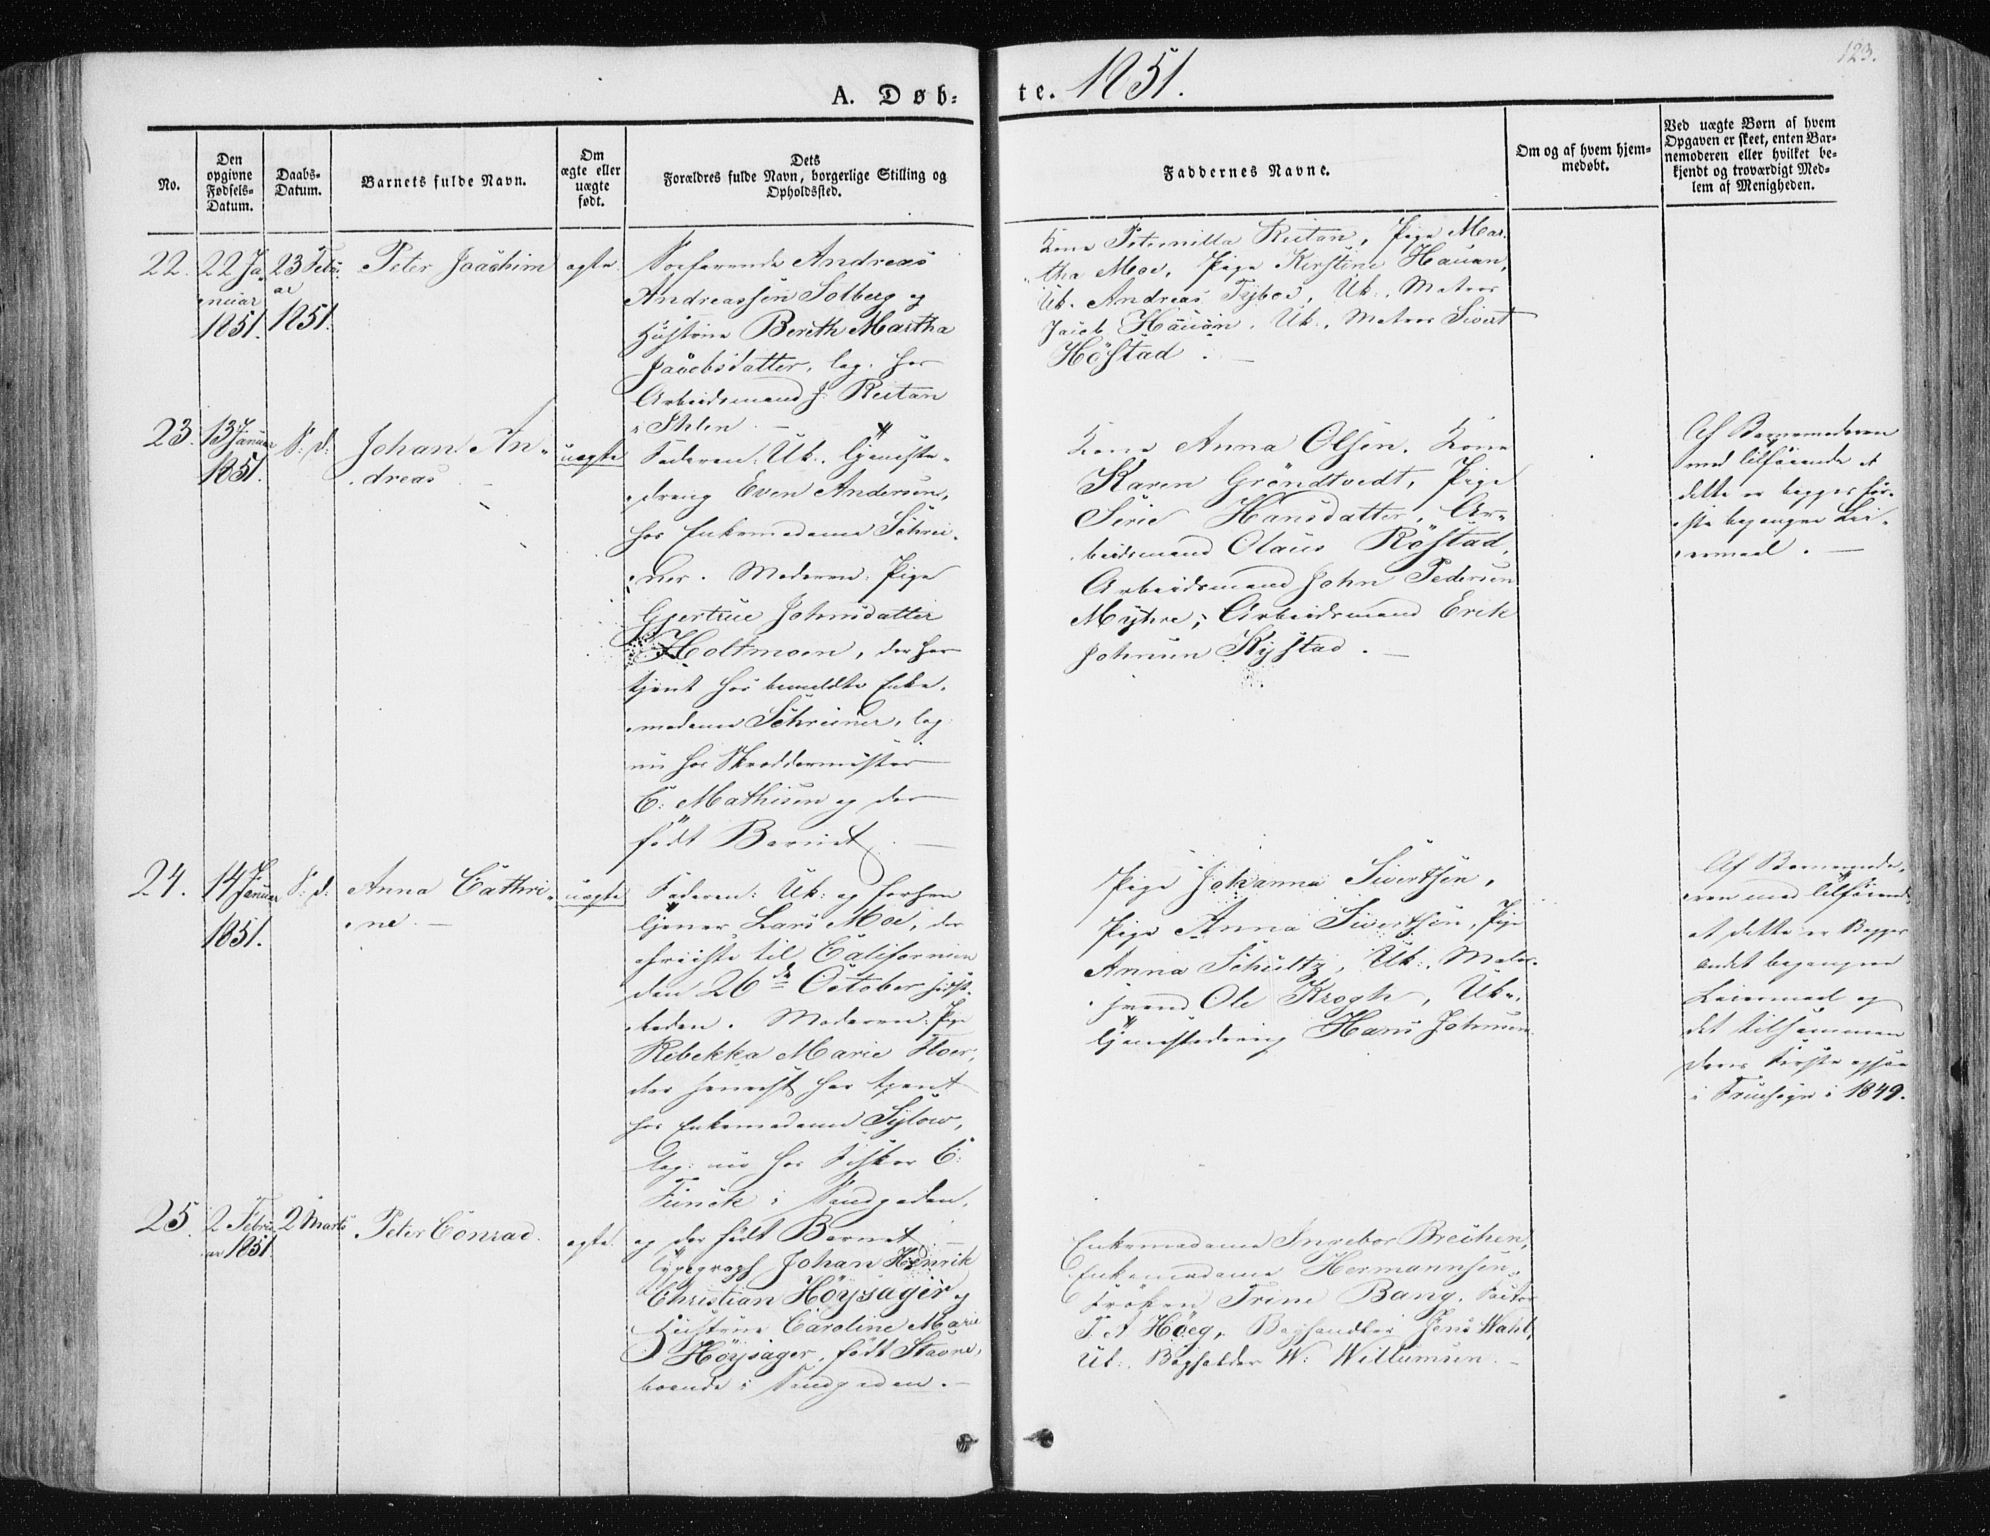 123.
A. Døb= te. 1851.
No.
Den opgivne Fødsels-Datum.
Daabs-Datum.
Barnets fulde Navn.
Om ægte eller uægte født.
Dets Forældres fulde Navn, borgerlige Stilling og Opholdssted.
Faddernes Navne.
Om og af hvem hjemmedøbt.
Ved uægte Børn af hvem
Opgaven er skeet, enten Bar-
nemoderen eller hvilket be-
kjendt og troværdigt Med-
lem af Menigheden.
22. 22 Ja
nuar
1851.
23 Febr.
ar
1851.
Peter Joachim
ægte.
Søefarende Andreas
Andreassen Solberg og
Hustrue Bereth Martha
Jacobsdatter, log. hos
Arbeidsmand J. Reitan
i Ihlen
Kone Peternilla Reitan, Pige Mar-
tha Moe, Pige Kirstine Hauan,
Uk. Andreas, Uk. Matros
Jacob Hauan, Uk. Matros Sivert
Höstad.
23. 13 Januar
1851.
S: D:
Johan An-
dreas
uægte
Faderen: Uk. Tjeneste-
dreng Even Andersen,
hos Enkemadame Schrei-
ner. Moderen: Pige
Gjertrue Johnsdatter
Holtmoen, der har
tjent hos bemeldte Enke-
madame Schreiner, log.
nu hos Skræddermester
C: Mathisen og der
født Barnet.
Kone Anna Olsen, Kone
Karen Gröndtvedt, Pige
Siri Hansdatter, Ar-
beidsmand Olaus Röstad,
Arbeidsmand John Pedersen
Myhre, Arbeidsmand Erik
Johnsen Rystad.
Af Barnemoderen
med Tilføiende at
dette er begges før-
ste begangne Lei-
ermaal.
24. 14 Januar
1851.
S: D:
Anna Cathri-
ne.
uægte
Faderen: Uk: og forhen
Tjener Lars Moe, der
afreiste til Californien
den 26de October sidst-
leden. Moderen: Pige
Rebekka Marie Moe,
der senest har tjent
hos Enkemadame Sylow,
log: nu hos Fisker C:
Funck i Sandgaden,
og der født Barnet.
Pige Johanna Sivertsen,
Pige Anna Sivertsen, Pige
Anna Schultz, Uk:
svend Ole Krogh, Uk.
Tjenestedreng Hans Johnsen
Af Barnemode-
ren med Tilføiende
at dette er Begges
andet begangne
Leiermaal og
det tilsammen
deres første ogsaa
i Fruesogn i 1849.
25. 2 Febru
ar 1851.
2 Marts
Peter Conrad.
ægte.
Typograph Johan Henrik
Christian Höysager og
Hustrue Caroline Marie
Höysager, født Stavne,
boende i Sandgaden.
Enkemadame Ingebor Breihen,
Enkemadame Hermannsen,
Fröken Trine Bang, Factor
T. A Höeg, Boghandler Jens Wahl,
Uk: Bogholder W: Willumsen.